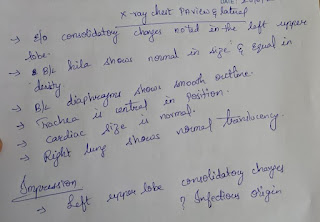 X-ray chest PA view & lateral
→ E/o consolidatory changes noted in the left upper
lobe.
→ B/L hila shows normal in size & equal in
density.
→ B/L diaphragms shows smooth outline.
→ Trachea is central in position.
→ Cardiac size is normal.
→ Right lung shows normal translucency.
Impression
→ Left upper lobe consolidatory changes
? Infectious origin